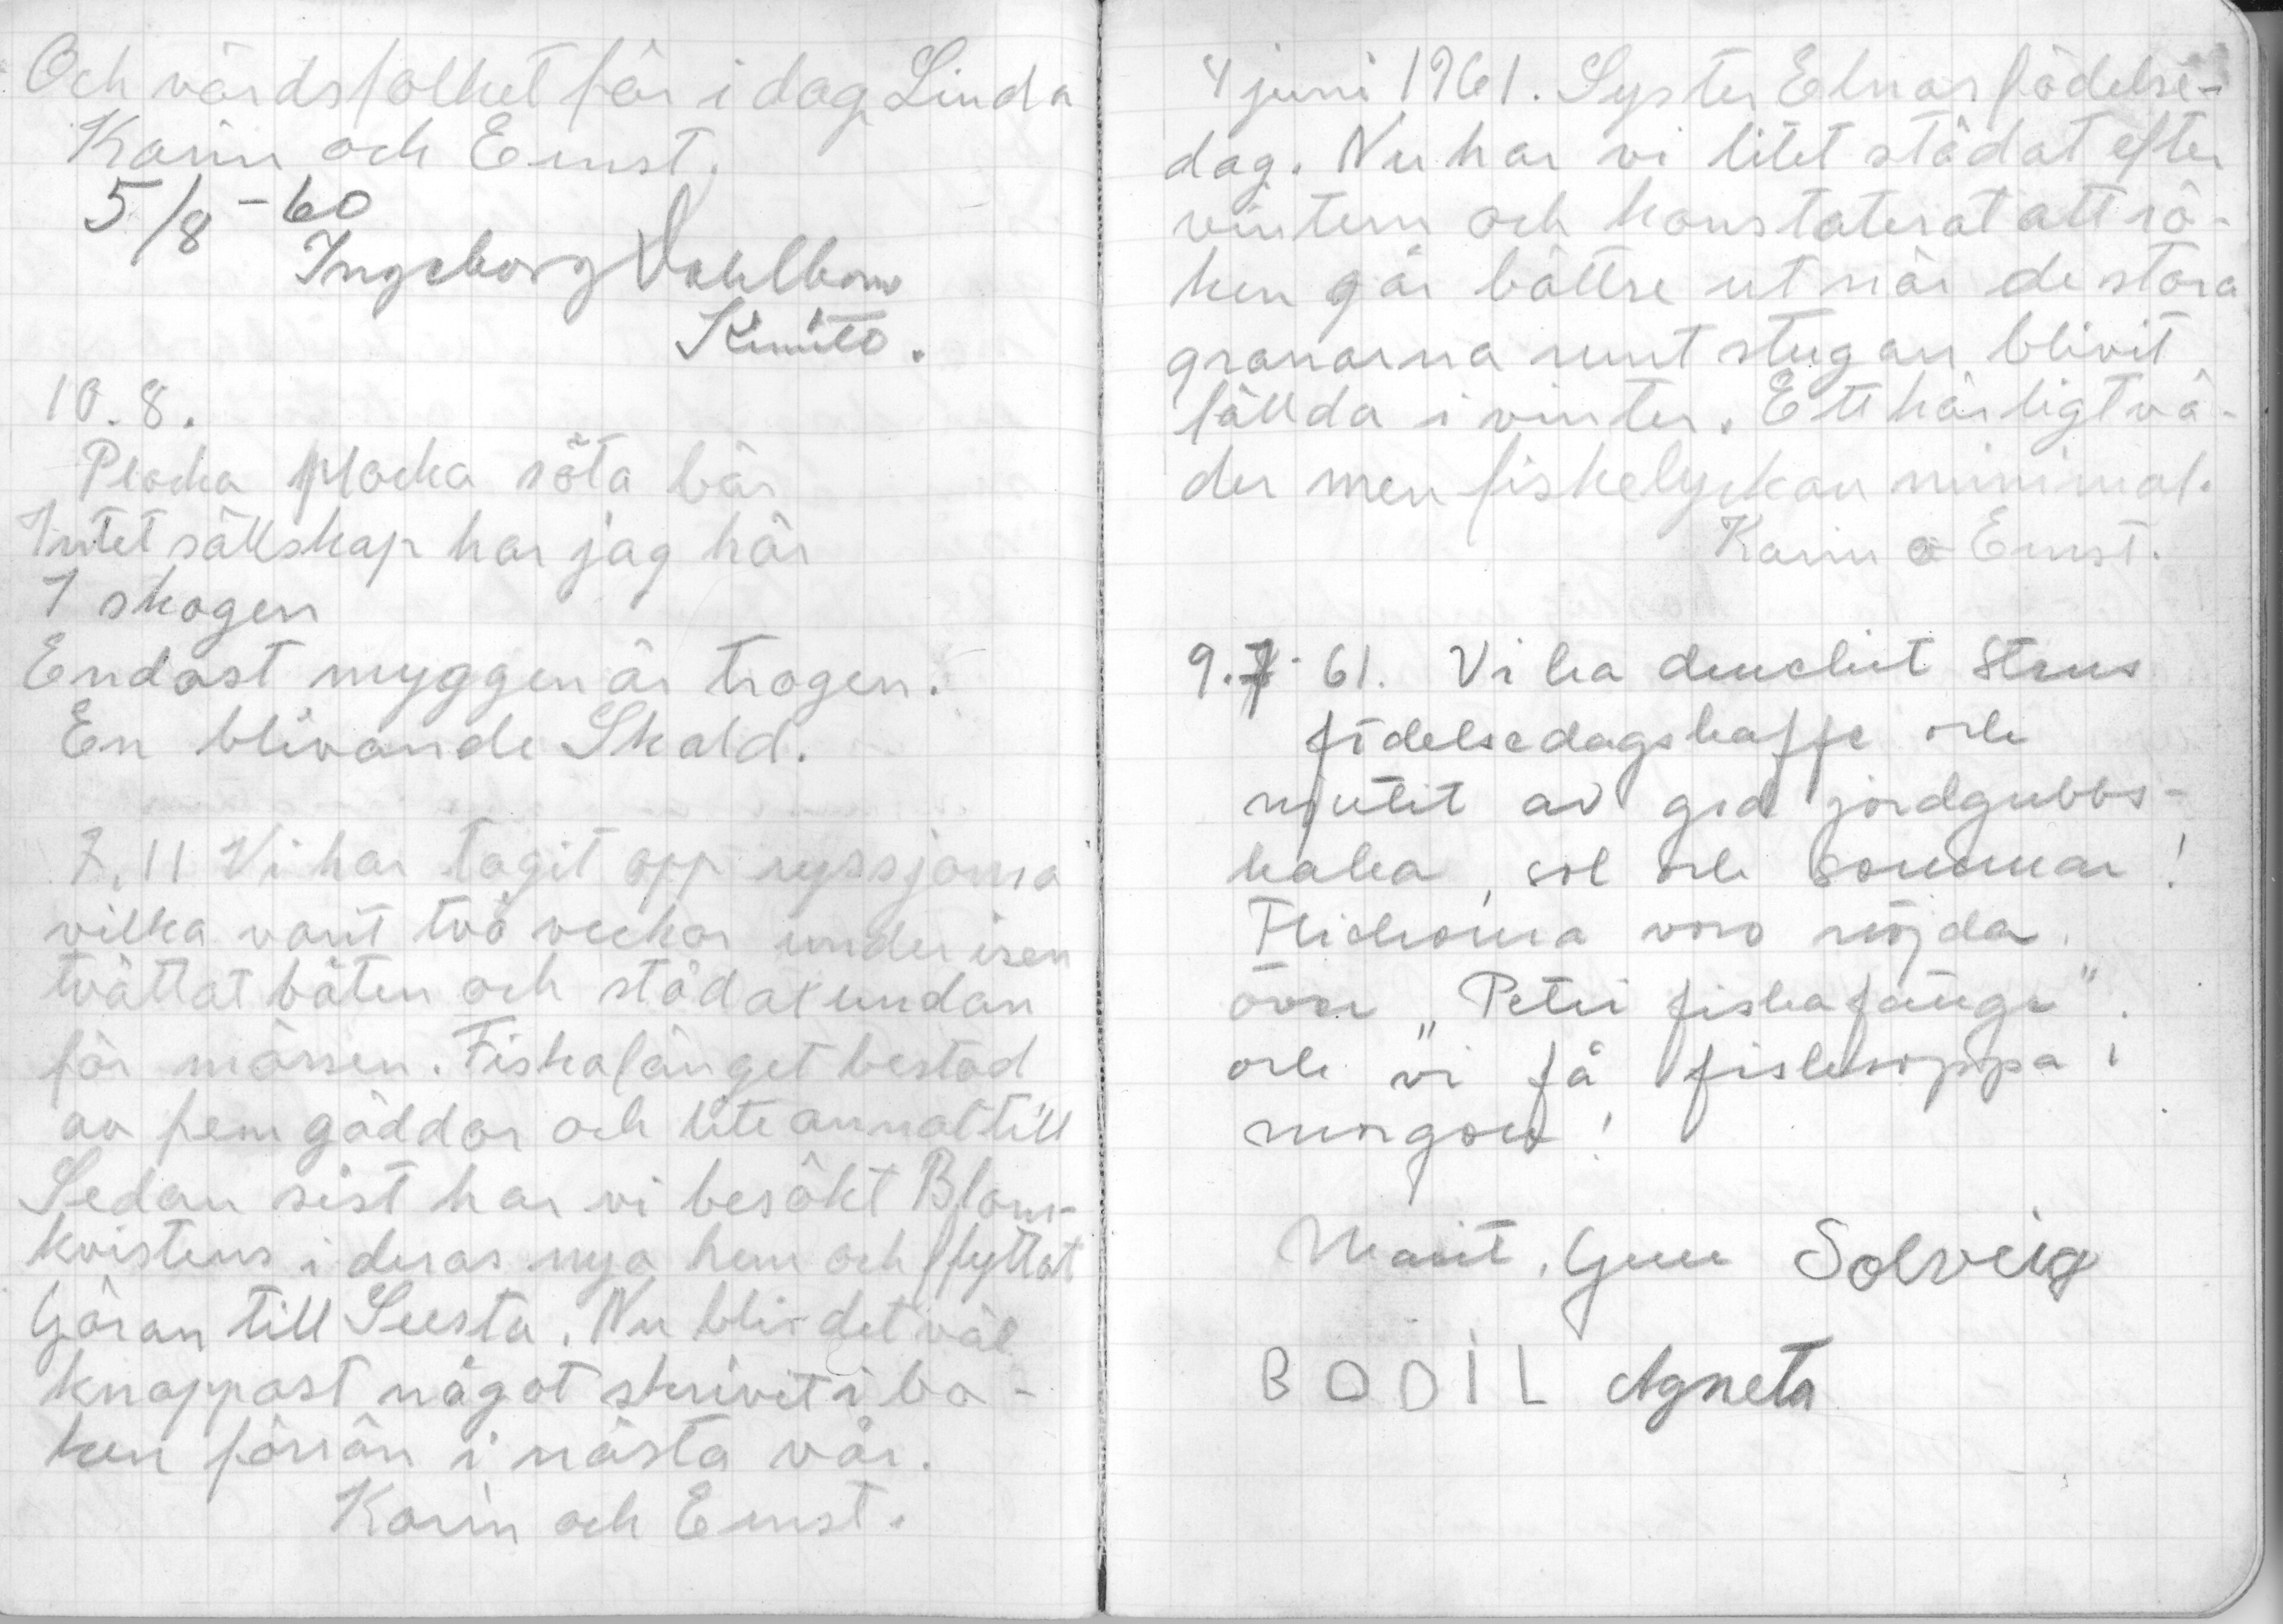 Och värdsfolket för i dag Linda
Karin och Ernst.
5/8 - 60
Ingeborg Dahlbom
Kimito.
10. 8.
Plocka plocka söta bär
Intet sällskap har jag här
I skogen
Endast myggen är trogen.
En blivande Skald.
7. 11 Vi har tagit opp ryssjorna
vilka varit två veckor under isen
tvättat båten och städat undan
för mössen. Fiskafänget bestod
av fem gäddor och lite annat till
Sedan sist har vi besökt Blom-
kvistens i deras nya hem och flyttat
Göran till Seesta. Nu blir det väl
knappast något skrivit i bo-
ken förrän i nästa vår.
Karin och Ernst.
4 juni 1961. Syster Elnas födelse-
dag. Nu har vi litet städat efter
vintern och konstaterat att rö-
ken går bättre ut när de stora
granarna runt stugan blivit
fällda i vinter. Ett härligt vä-
der men fiskelyckan minimal.
Karin o Ernst.
9. 7. 61. Vi ha druckit Stens
födelsedagskaffe och
njutit av god jordgubbs-
kaka, sol och sommar!
Flickorna voro nöjda
över "Petri fiskafänge".
och vi få fisksoppa i
morgon!
Marit, Gun Solveig
BODIL Agneta